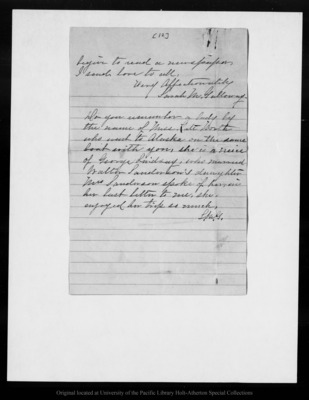 [10]
begin to read a newspaper,
I send love to all.
Very Affectionately
Sarah M. Galloway.
Do you remember a lady by
the name of Miss Kate North
who went to Alaska on the same
boat with you, she is a niece
of George Lindsay, who married
Walter Sanderson's daughter
Mrs Sanderson spoke of her in
her last letter to me, she
enjoyed her trip so much,
S.M.G.
Original located at University of the Pacific Library Holt-Atherton Special Collections